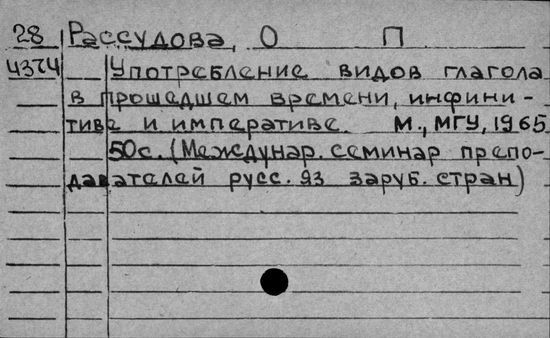 28 Рассудова, О П
4374 Употребление видов глагола
в прошедшем времени, инфини-
тиве и императиве. М., МГУ, 1965
50с. (Междунар. семинар препо-
давателей русс. яз заруб. стран)